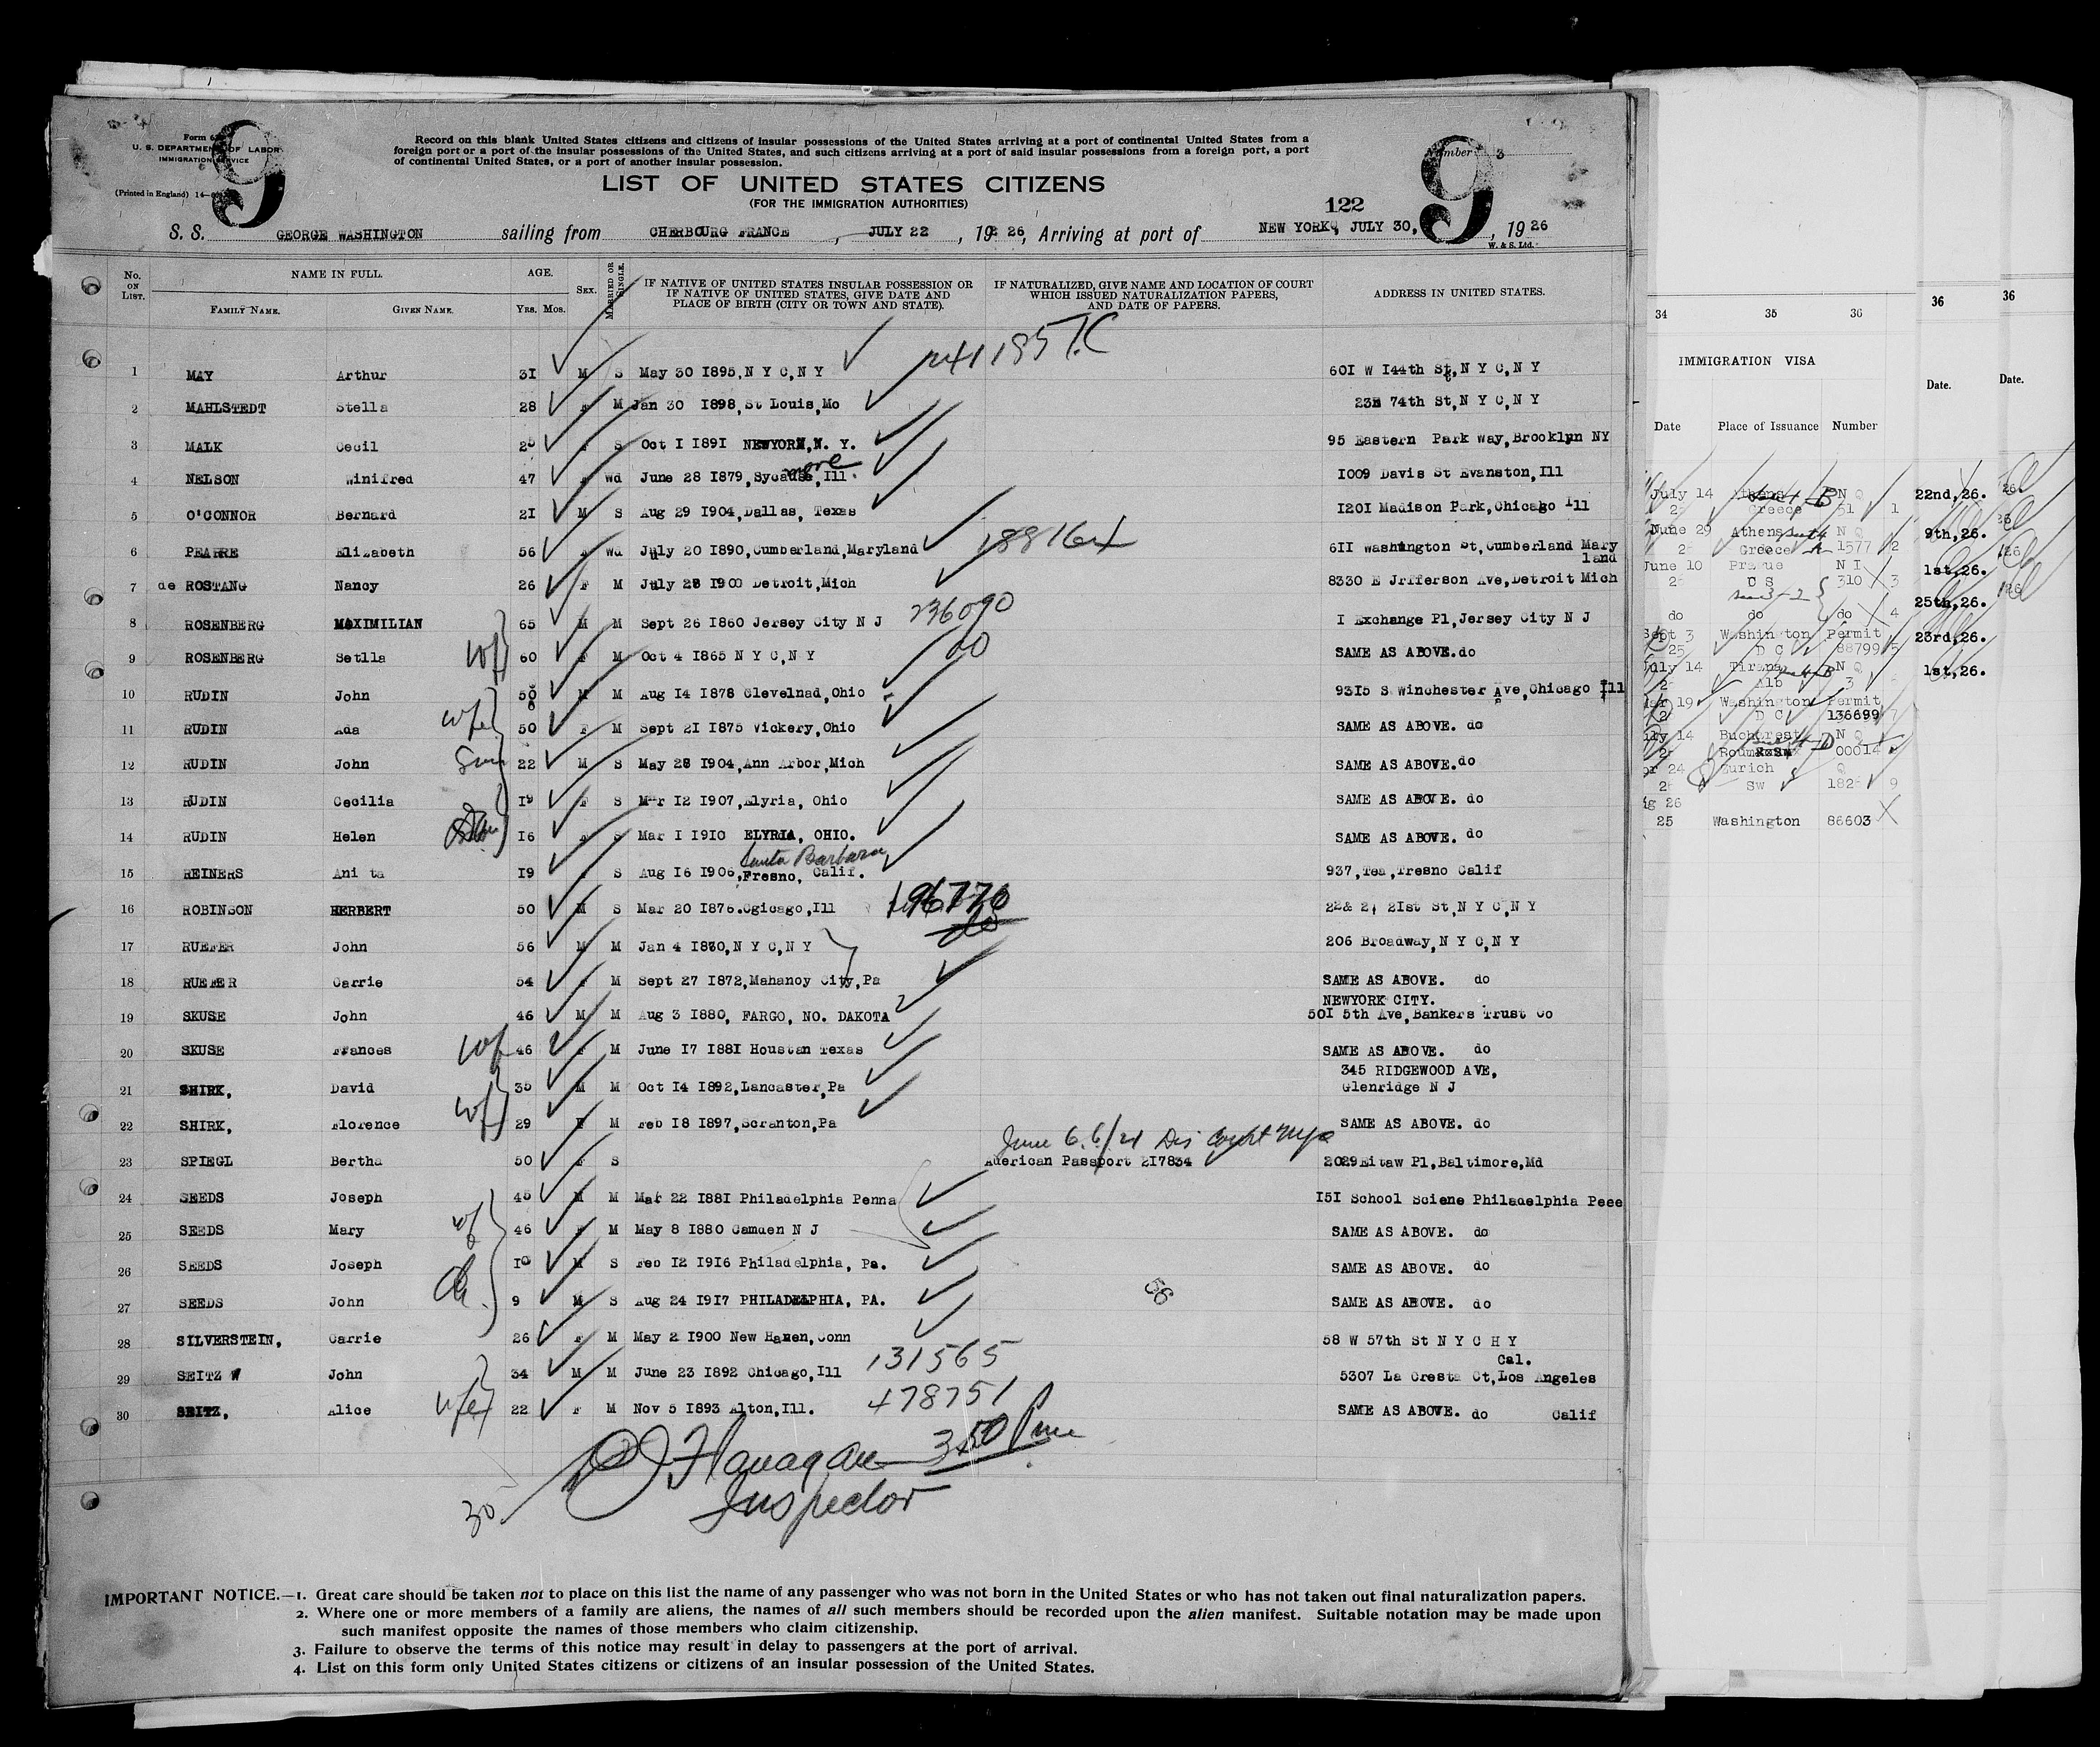 Form 6
U. S. DEPARTMENT OF LABOR
IMMIGRATION SERVICE
(Printed in England) 14—
9
Record on this blank United States citizens and citizens of insular possessions of the United States arriving at a port of continental United States from a
foreign port or a port of the insular possessions of the United States, and such citizens arriving at a port of said insular possessions from a foreign port, a port
of continental United States, or a port of another insular possession.
Number 3
9
LIST OF UNITED STATES CITIZENS
(FOR THE IMMIGRATION AUTHORITIES)
122
S. S. GEORGE WASHINGTON sailing from CHERBOURG FRANCE, JULY 22, 192 26, Arriving at port of NEW YORK, JULY 30, 1926
W. & S. Ltd.
No. ON LIST. NAME IN FULL. AGE. SEX. MARRIED OR SINGLE. IF NATIVE OF UNITED STATES INSULAR POSSESSION OR IF NATIVE OF UNITED STATES, GIVE DATE AND PLACE OF BIRTH (CITY OR TOWN AND STATE). IF NATURALIZED, GIVE NAME AND LOCATION OF COURT WHICH ISSUED NATURALIZATION PAPERS, AND DATE OF PAPERS. ADDRESS IN UNITED STATES.
FAMILY NAME. GIVEN NAME. YRS. MOS.
1 MAY Arthur 31 M S May 30 1895,N Y C,N Y 601 W 144th St,N Y C,N Y
2 MAHLSTEDT Stella 28 F M Jan 30 1898,St Louis,Mo 74th St,N Y C,N Y
3 MALK Cecil F S Oct 1 1891 NEWYORK,N. Y. 95 Eastern Park Way,Brooklyn NY
4 NELSON Winifred 47 F Wd June 28 1879, more ,Ill. 1009 Davis St Evanston,Ill
5 O'CONNOR Bernard 21 M S Aug 29 1904,Dallas, Texas 1201 Madison Park,Chicago Ill
6 PEARRE Elizabeth 56 F Wd July 20 1890,Cumberland,Maryland 611 Washington St,Cumberland Mary
land
7 de ROSTANG Nancy 26 F M July 28 1900 Detroit,Mich 8330 E Jrfferson Ave,Detroit Mich
8 ROSENBERG MAXIMILIAN 65 M M Sept 26 1860 Jersey City N J 236090 1 Exchange Pl,Jersey City N J
9 ROSENBERG Setlla wf 60 F M Oct 4 1865 N Y C,N Y do SAME AS ABOVE.do
10 RUDIN John 50 M M Aug 14 1878 Clevelnad,Ohio 9315 S Winchester Ave,Chicago Ill
11 RUDIN Ada wfe 50 F M Sept 21 1875 Vickery,Ohio SAME AS ABOVE. do
12 RUDIN John Son 22 M S May 28 1904,Ann Arbor,Mich SAME AS ABOVE.do
13 RUDIN Cecilia 19 F S Mar 12 1907,Elyria, Ohio SAME AS ABOVE. do
14 RUDIN Helen 16 F S Mar 1 1910 ELYRIA, OHIO. SAME AS ABOVE. do
Santa Barbara
15 REINERS Anita 19 F S Aug 16 1906,Fresno, Calif. 937,Tea,Tresno Calif
16 ROBINSON HERBERT 50 M S Mar 20 1876.Cgicago,Ill 196770 21st St,N Y C,N Y
17 RUEFER John 56 M M Jan 4 1870,N Y C,N Y 206 Broadway,N Y C,N Y
18 RUEFER Carrie 54 F M Sept 27 1872,Mahanoy City,Pa SAME AS ABOVE. do
NEWYORK CITY.
19 SKUSE John 46 M M Aug 3 1880, FARGO, NO. DAKOTA 501 5th Ave,Bankers Trust Co
20 SKUSE Frances wf 46 F M June 17 1881 Houstan Texas SAME AS ABOVE. do
345 RIDGEWOOD AVE,
21 SHIRK, David M M Oct 14 1892,Lancaster,Pa Glenridge N J
22 SHIRK, Florence wf 29 F M Feb 18 1897,Scranton,Pa SAME AS ABOVE. do
23 SPIEGL Bertha 50 F S American Passport 217834 2029 Eitaw Pl,Baltimore,Md
24 SEEDS Joseph 45 M M Mar 22 1881 Philadelphia Penna 151 School Sciene Philadelphia Peee
25 SEEDS Mary wf 46 F M May 8 1880 Camden N J SAME AS ABOVE. do
26 SEEDS Joseph 10 M S Feb 12 1916 Philadelphia, Pa. SAME AS ABOVE. do
27 SEEDS John Ch. 9 M S Aug 24 1917 PHILADELPHIA, PA. SAME AS ABOVE. do
56
28 SILVERSTEIN, Carrie 26 F M May 2 1900 New Haven,Conn 58 W 57th St N Y C H Y
Cal.
29 SEITZ John 34 M M June 23 1892 Chicago,Ill 131565 5307 La Cresta Ct,Los Angeles
30 SEITZ, Alice wfe 22 F M Nov 5 1893 Alton,Ill. 478751 SAME AS ABOVE. do Calif
Flanagan 350 Pm
Inspector
30
IMPORTANT NOTICE.—1. Great care should be taken not to place on this list the name of any passenger who was not born in the United States or who has not taken out final naturalization papers.
2. Where one or more members of a family are aliens, the names of all such members should be recorded upon the alien manifest. Suitable notation may be made upon
such manifest opposite the names of those members who claim citizenship.
3. Failure to observe the terms of this notice may result in delay to passengers at the port of arrival.
4. List on this form only United States citizens or citizens of an insular possession of the United States.
34 35 36
IMMIGRATION VISA
Date Place of Issuance Number
July 14 Athens N Q
Greece 51 1
June 29 Athens N Q
Greece 1577 2
June 10 Prague N I
U S 310 3
do do do 4
Sept 3 Washington Permit
25 D C 88799 5
July 14 Tirana N Q
Alb 3
Mar 19 Washington Permit
D C 136699 7
July 14 Bucharest N Q
00014
Zurich Q
Sw 9
Aug 26
25 Washington 86603
36
Date.
22nd,26.
9th,26.
1st,26.
25th,26.
23rd,26.
1st,26.
36
Date.